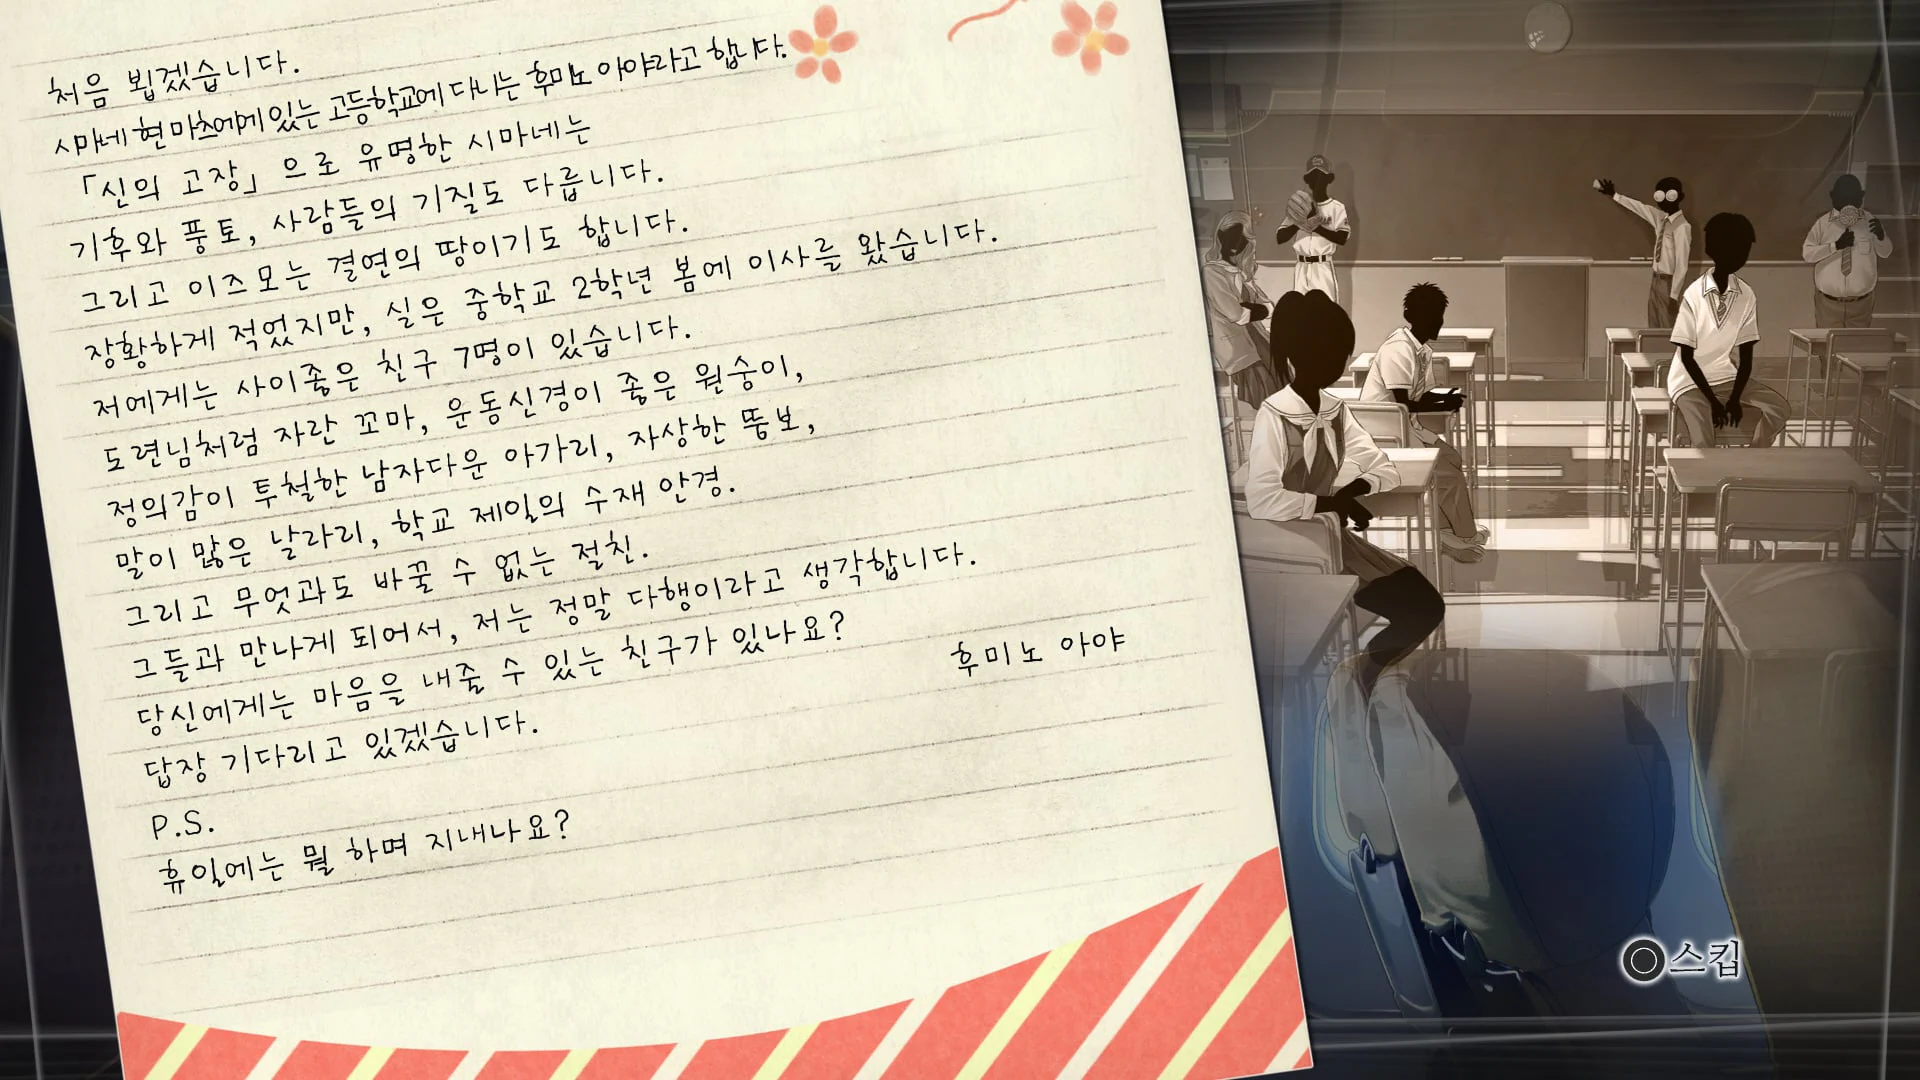 처음 뵙겠습니다.
시마네 현 마츠에에 있는 고등학교에 다니는 후미노 아야라고 합니다.
「신의 고장」으로 유명한 시마네는
기후와 풍토, 사람들의 기질도 다릅니다.
그리고 이즈모는 결연의 땅이기도 합니다.
장황하게 적었지만, 실은 중학교 2학년 봄에 이사를 왔습니다.
저에게는 사이좋은 친구 7명이 있습니다.
도련님처럼 자란 꼬마, 운동신경이 좋은 원숭이,
정의감이 투철한 남자다운 아가리, 자상한 뚱보,
말이 많은 날라리, 학교 제일의 수재 안경.
그리고 무엇과도 바꿀 수 없는 절친.
그들과 만나게 되어서, 저는 정말 다행이라고 생각합니다.
당신에게는 마음을 내줄 수 있는 친구가 있나요?
답장 기다리고 있겠습니다.
후미노 아야
P.S.
휴일에는 뭘 하며 지내나요?
스킵